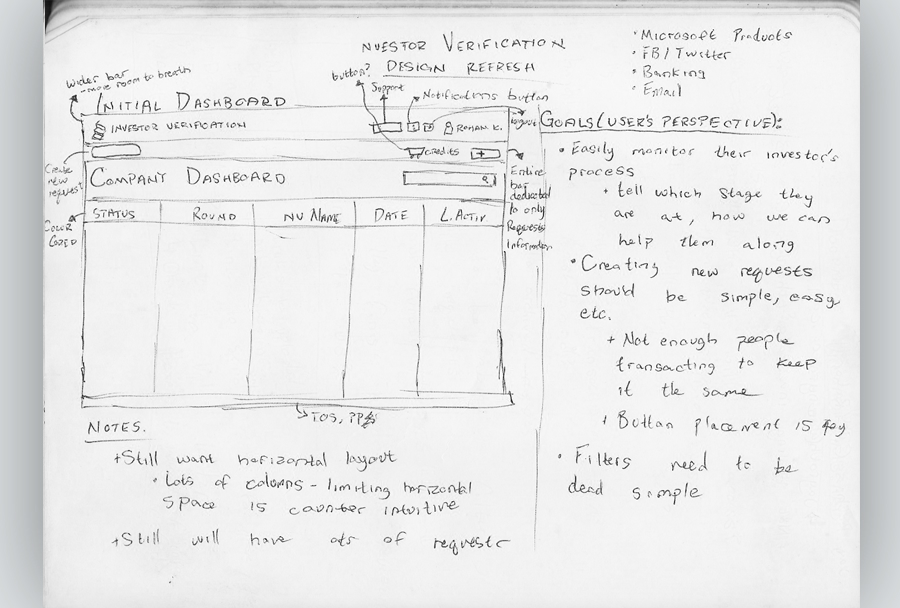 NVESTOR VERIFICATION
DESIGN REFRESH
• Microsoft Products
• FB/Twitter
• Banking
• Email
Wider bar
- more room to breath
button?
Support
Notifications button
INITIAL DASHBOARD
INVESTOR VERIFICATION
ROMAN K.
Logout
Credits
+
Create
new
request
COMPANY DASHBOARD
Entire
bar
dedicated
to only
Requests
Information
Color
CODED
STATUS
ROUND
NV NAME
DATE
L.ACTIV
TOS, PP
NOTES.
+Still want horizontal layout
• Lots of columns - limiting horizontal
space is counter intuitive
+Still will have ots of requests
GOALS(USER'S PERSPECTIVE):
• Easily monitor their investor's
process
+ tell which stage they
are at, how we can
help them along
• Creating new requests
should be simple, easy
etc.
+ Not enough people
transacting to keep
it the same
+ Button placement is key
• Filters need to be
dead simple